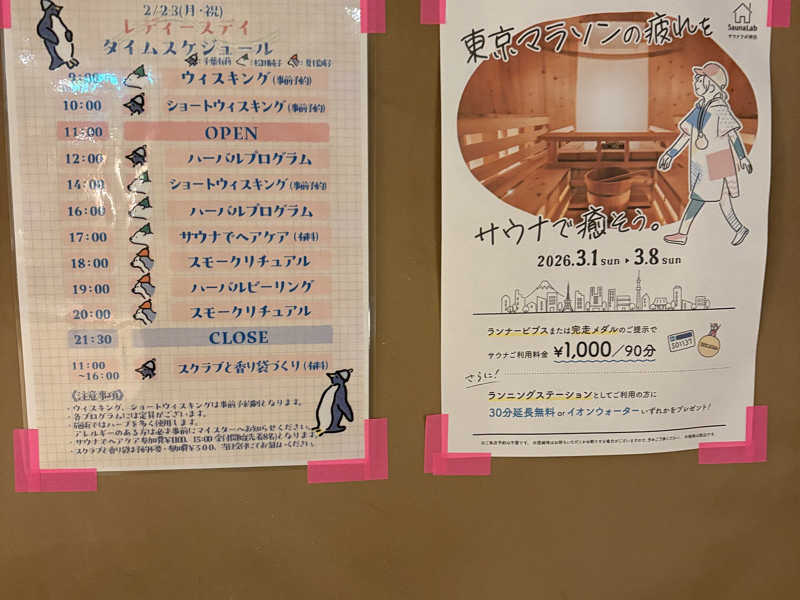 2/23(月・祝)
レディースデイ
タイムスケジュール
9:00 ウィスキング(事前予約)
10:00 ショートウィスキング(事前予約)
11:00 OPEN
12:00 ハーバルプログラム
14:00 ショートウィスキング(事前予約)
16:00 ハーバルプログラム
17:00 サウナでヘアケア(有料)
18:00 スモークリチュアル
19:00 ハーバルピーリング
20:00 スモークリチュアル
21:30 CLOSE
11:00
~16:00 スクラブと香り袋づくり(有料)
《注意事項》
・ウィスキング、ショートウィスキングは事前予約制となります。
・各プログラムには定員がございます。
・施術ではハーブを多く使用します。
アレルギーのある方は必ず事前にマイスターへお知らせください。
東京マラソンの疲れを
SaunaLab
サウナで癒そう。
2026.3.1 sun ▶ 3.8 sun
ランナービブスまたは完走メダルのご提示で
サウナご利用料金 ¥1,000/90分
さらに!
ランニングステーションとしてご利用の方に
30分延長無料 or イオンウォーター いずれかをプレゼント!